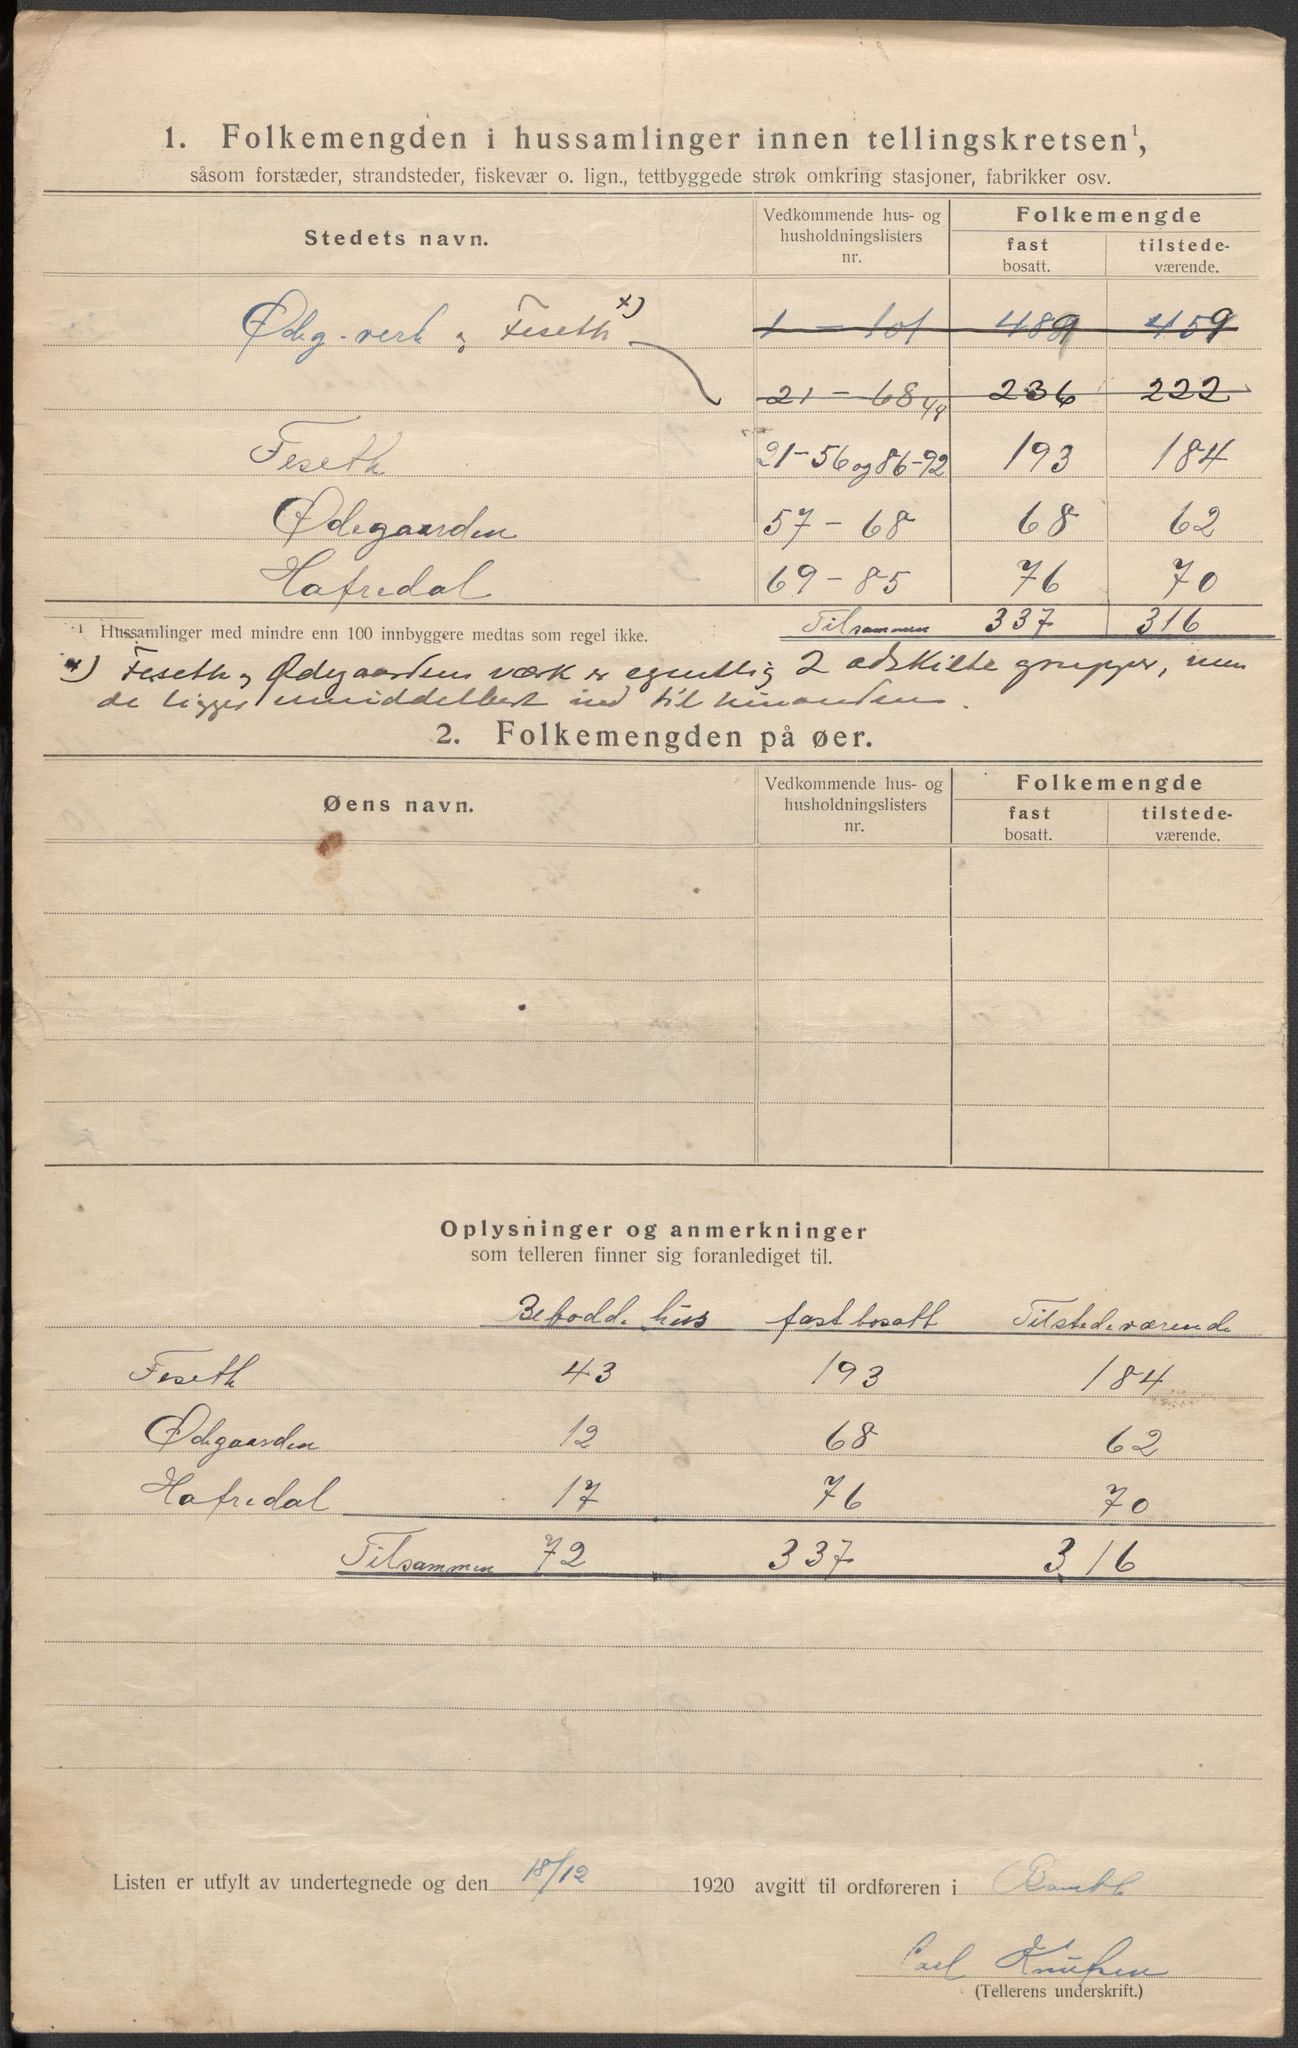 1. Folkemengden i hussamlinger innen tellingskretsen¹,
såsom forstæder, strandsteder, fiskevær o. lign., tettbyggede strøk omkring stasjoner, fabrikker osv.
Stedets navn. Vedkommende hus- og husholdningslisters nr. Folkemengde
fast bosatt. tilstede-værende.
Ødeg. verk og Feseth x) 1 - 101 489 459
21 - 68 48 236 222
Feseth 21-56 og 86-92 193 184
Ødegaarden 57 - 68 68 62
Hafredal 69 - 85 76 70
¹ Hussamlinger med mindre enn 100 innbyggere medtas som regel ikke. Tilsammen 337 316
x) Feseth og Ødegaardens værk er egentlig 2 adskilte grupper, men
de ligger umiddelbart ind til hinanden.
2. Folkemengden på øer.
Øens navn. Vedkommende hus- og husholdningslisters nr. Folkemengde
fast bosatt. tilstede-værende.
Oplysninger og anmerkninger
som telleren finner sig foranlediget til.
Bebodde hus fast bosatt Tilstedeværende
Feseth 43 193 184
Ødegaarden 12 68 62
Hafredal 17 76 70
Tilsammen 72 337 316
Listen er utfylt av undertegnede og den 18/12 1920 avgitt til ordføreren i Bamble
Carl Knutsen
(Tellerens underskrift.)